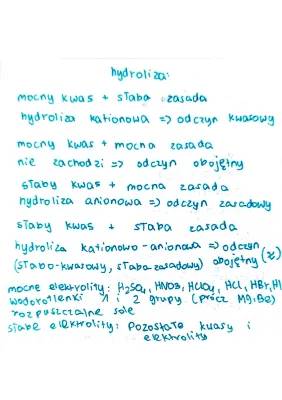 hydroliza:
mocny kwas + słaba zasada
hydroliza kationowa => odczyn kwasowy
mocny kwas + mocna zasada
nie zachodzi => odczyn obojętny
słaby kwas + mocna zasada
hydroliza anionowa => odczyn zasadowy
słaby kwas + słaba zasada
hydroliza kationowo-anionowa => odczyn
(słabo-kwasowy, słabo zasadowy) obojętny (~)
mocne elektrolity: H₂SO₄, HNO₃, HClO₄, HCl, HBr, HI
wodorotlenki 1 i 2 grupy (prócz Mg i Be)
rozpuszczalne sole
słabe elektrolity: Pozostałe kwasy i
elektrolity